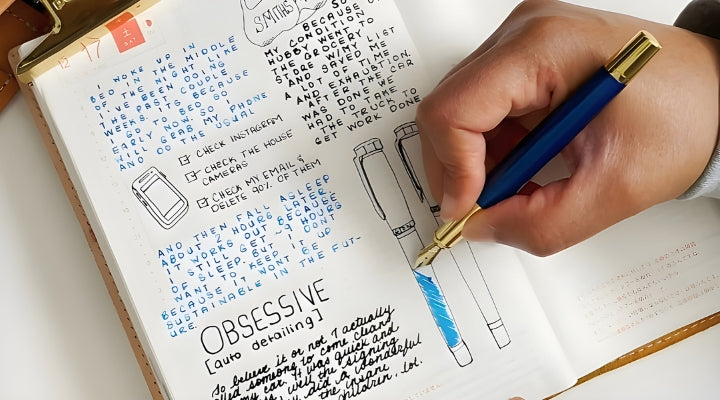 12 17 1
SAT
WOKE UP IN
BED IN THE MIDDLE
OF THE NIGHT LIKE
I'VE BEEN DOING
THE PAST COUPLE
WEEKS. IT'S BECAUSE
I GO TO BED SO
EARLY NOW. SO I
WILL GRAB MY PHONE
AND DO THE USUAL
CHECK INSTAGRAM
CHECK THE HOUSE
CAMERAS
CHECK MY EMAIL &
DELETE 90% OF THEM
AND THEN FALL ASLEEP
ABOUT 2 HOURS LATER.
IT WORKS OUT BECAUSE
I STILL GET ~9 HOURS
OF SLEEP. BUT I DON'T
WANT TO KEEP IT UP
BECAUSE IT WON'T BE
SUSTAINABLE IN THE FUT-
URE.
OBSESSIVE
[auto detailing]
So believe it or not I actually
called someone to come clean
my car. It was quick and
well the signing
did a wonderful
the insane
children. lol.
SMITHS
BECAUSE OF
MY CONDITION
HUBBY WENT TO
THE GROCERY
STORE W/MY LIST
AND SAVED ME
A LOT OF TIME
AND EXHAUSTION.
AFTER THE CAR
WAS DONE WE
HAD TO TAKE
THE TRUCK TO
GET WORK DONE